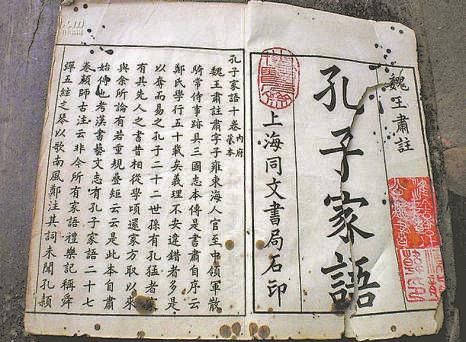 魏王肅註
孔子家語
上海同文書局石印
孔子家語十卷 內府藏本
魏王肅註肅字子雍東海人官至中領軍散
騎常侍事跡具三國志本傳是書肅自序云
鄭氏學行五十載矣義理不安違錯者多是
以奪而易之孔子二十二世孫有孔猛者家
有其先人之書昔相從學頃還家方取以來
與余所論有若重規疊矩云云是此本自肅
始傳也考漢書藝文志有孔子家語二十七
卷顏師古注云非今所有家語禮樂記稱舜
彈五絃之琴以歌南風鄭注其詞未聞孔穎